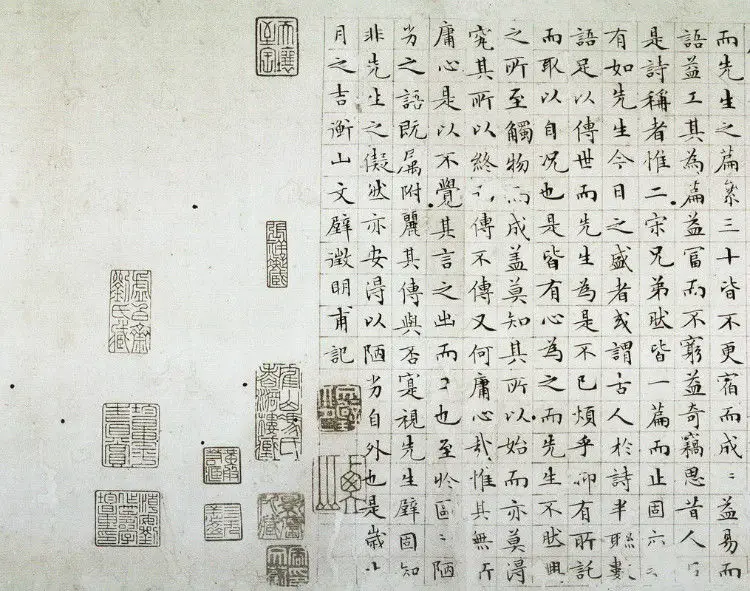 而先生之篇累三十皆不更宿而成〻益易而
語益工其為篇益富而不窮益奇竊思昔人
是詩稱者惟二宋兄弟然皆一篇而止固
有如先生今日之盛者或謂古人於詩半聯數
語足以傳世而先生為是不已煩乎抑有所託
而取以自況也是皆有心為之而先生不然興
之所至觸物而成蓋莫知其所以始而亦莫得
究其所以終傳不傳又何庸心哉惟其無所
庸心是以不覺其言之出而工也至於區〻陋
劣之語既屬附麗其傳與否寔視先生壁固知
非先生之儗然亦安得以陋劣自外也是歲
月之吉衡山文壁徵明甫記